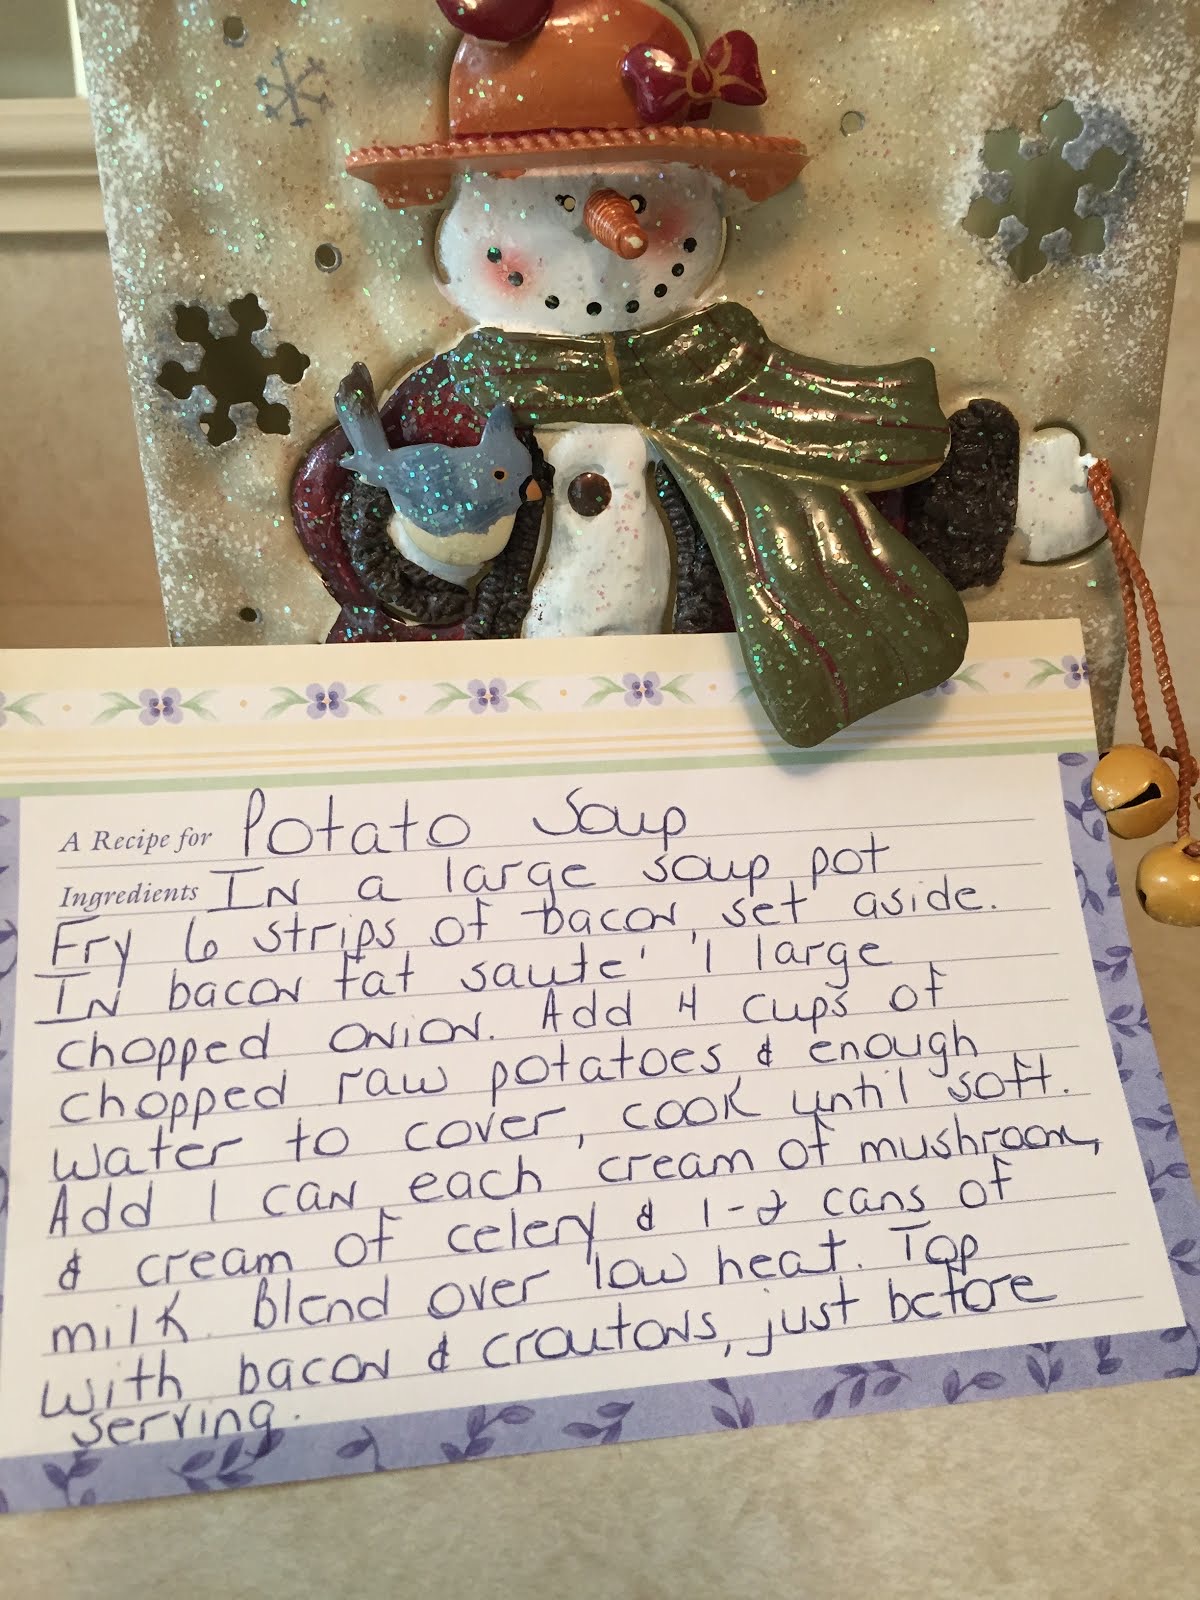 A Recipe for Potato Soup
Ingredients In a large soup pot
Fry 6 strips of bacon, set aside.
In bacon fat saute' 1 large
chopped onion. Add 4 cups of
chopped raw potatoes & enough
water to cover, cook until soft.
Add 1 can each cream of mushroom,
& cream of celery & 1-2 cans of
milk. Blend over low heat. Top
with bacon & croutons, just before
serving.